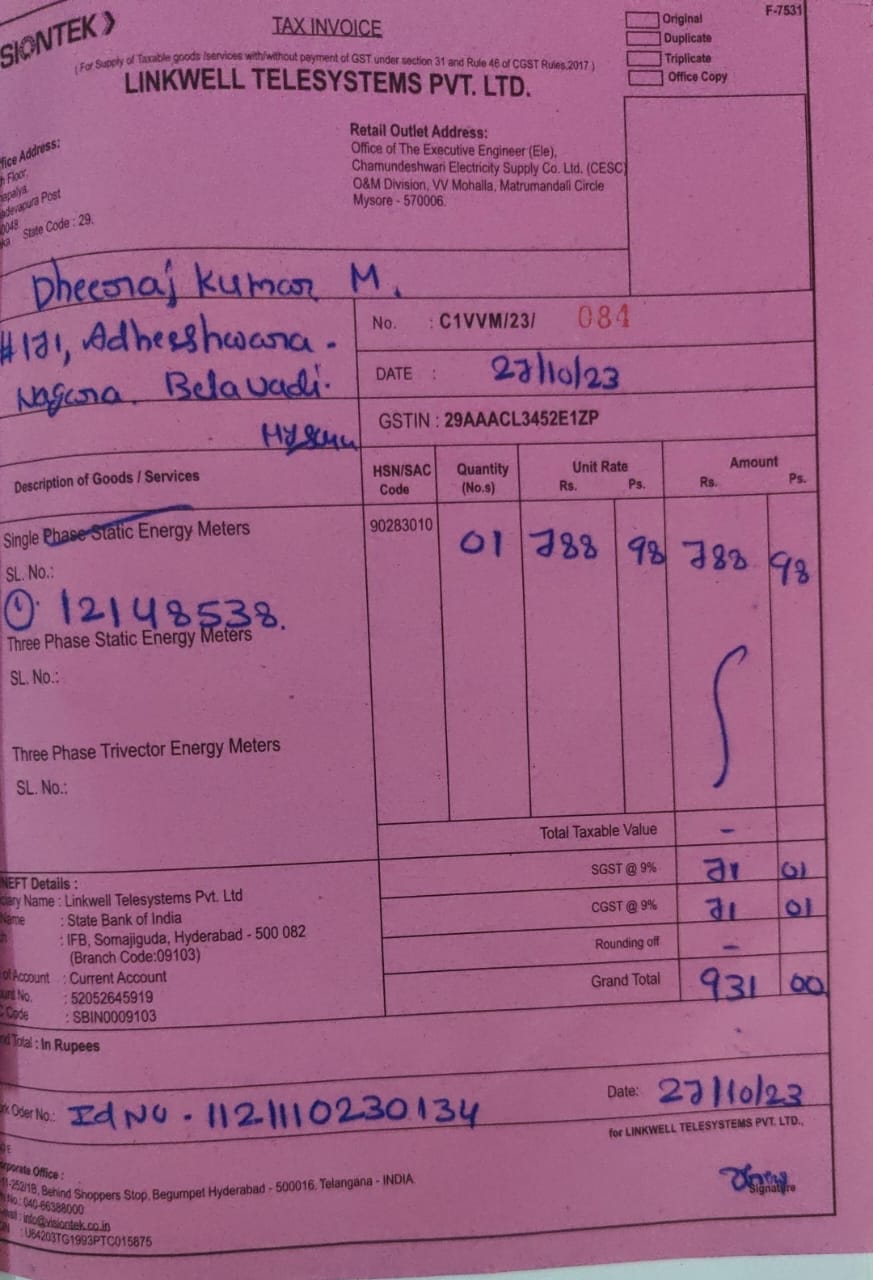 SIONTEK
TAX INVOICE
( For Supply of Taxable goods /services with/without payment of GST under section 31 and Rule 46 of CGST Rules,2017 )
LINKWELL TELESYSTEMS PVT. LTD.
F-7531
Original
Duplicate
Triplicate
Office Copy
fice Address:
Floor,
apalya,
adevapura Post
0048
ka State Code : 29.
Retail Outlet Address:
Office of The Executive Engineer (Ele),
Chamundeshwari Electricity Supply Co. Ltd. (CESC)
O&M Division, VV Mohalla, Matrumandali Circle
Mysore - 570006.
Dheeraj Kumar M.
#171, Adheeshwara.
Nagara. Belavadi.
No. : C1VVM/23/ 084
DATE : 27/10/23
GSTIN : 29AAACL3452E1ZP
Description of Goods / Services HSN/SAC Code Quantity (No.s) Unit Rate Rs. Ps. Amount Rs. Ps.
Single Phase Static Energy Meters 90283010 01 788 98 788 98
SL. No.:
① 12148538.
Three Phase Static Energy Meters
SL. No.:
Three Phase Trivector Energy Meters
SL. No.:
Total Taxable Value -
SGST @ 9% 71 01
CGST @ 9% 71 01
Rounding off -
Grand Total 931 00
NEFT Details :
ciary Name : Linkwell Telesystems Pvt. Ltd
Name : State Bank of India
h : IFB, Somajiguda, Hyderabad - 500 082
(Branch Code:09103)
of Account : Current Account
unt No. : 52052645919
C Code : SBIN0009103
nd Total : In Rupees
rk Oder No.: Id No - 1121110230134
Date: 27/10/23
for LINKWELL TELESYSTEMS PVT. LTD.,
Signature
rporate Office :
11-252/1B, Behind Shoppers Stop, Begumpet Hyderabad - 500016, Telangana - INDIA.
No.: 040-66388000
mail : info@visiontek.co.in
: U64203TG1993PTC015875